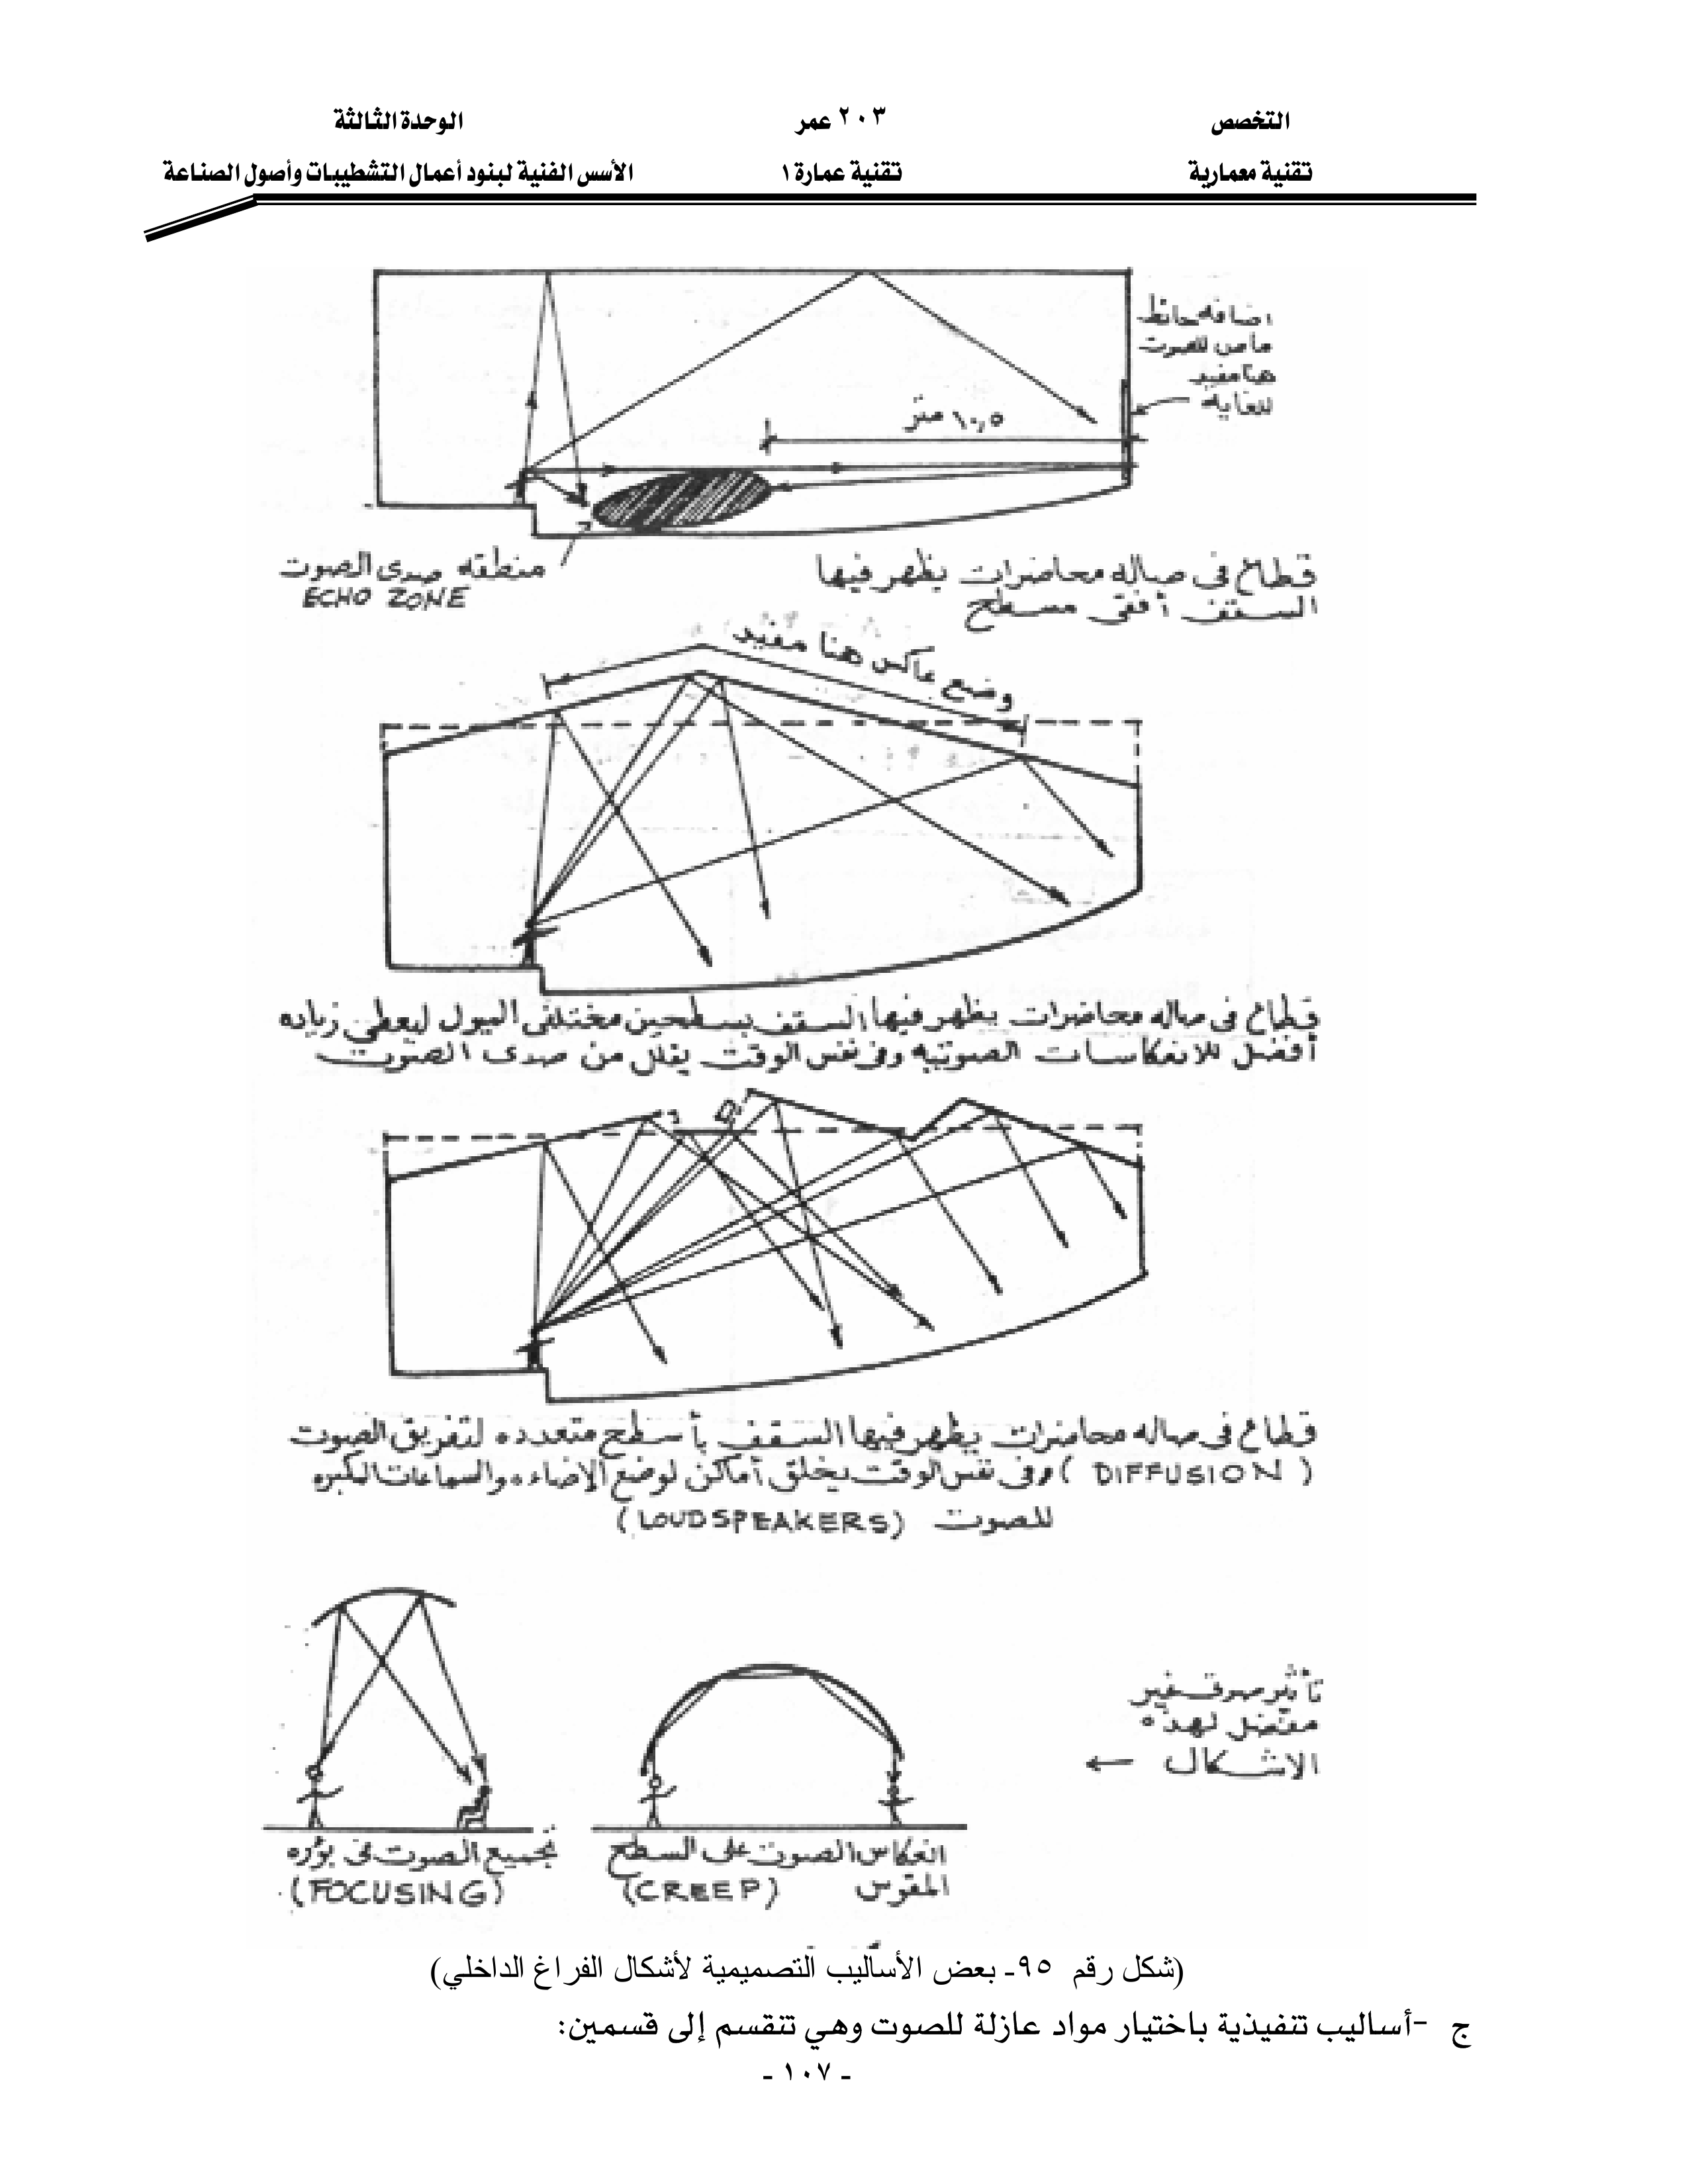 التخصص ٢٠٣ عمر الوحدة الثالثة
تقنية معمارية تقنية عمارة ١ الأسس الفنية لبنود أعمال التشطيبات وأصول الصناعة
اضافه حائط
ماص للصوت
هنا مفيد
للغايه
١٠,٥ متر
منطقه صدى الصوت
ECHO ZONE
قطاع فى صاله محاضرات يظهر فيها
السقف أفقى مسطح
وضع عاكس هنا مفيد
قطاع فى صاله محاضرات يظهر فيها السقف بسطحين مختلفى الميول ليعطي زياده
أفضل للانعكاسات الصوتيه وفى نفس الوقت يقلل من صدى الصوت
قطاع فى صاله محاضرات يظهر فيها السقف بأسطح متعدده لتفريق الصوت
(DIFFUSION) وفى نفس الوقت يخلق أماكن لوضع الإضاءه والسماعات المكبره
للصوت (LOUDSPEAKERS)
تأثير صوتى غير
مفضل لهذه
الاشكال ←
انعكاس الصوت على السطح
المقوس (CREEP)
تجميع الصوت فى بؤره
(FOCUSING)
(شكل رقم ٩٥- بعض الأساليب التصميمية لأشكال الفراغ الداخلي)
ج -أساليب تنفيذية باختيار مواد عازلة للصوت وهي تنقسم إلى قسمين:
- ١٠٧ -